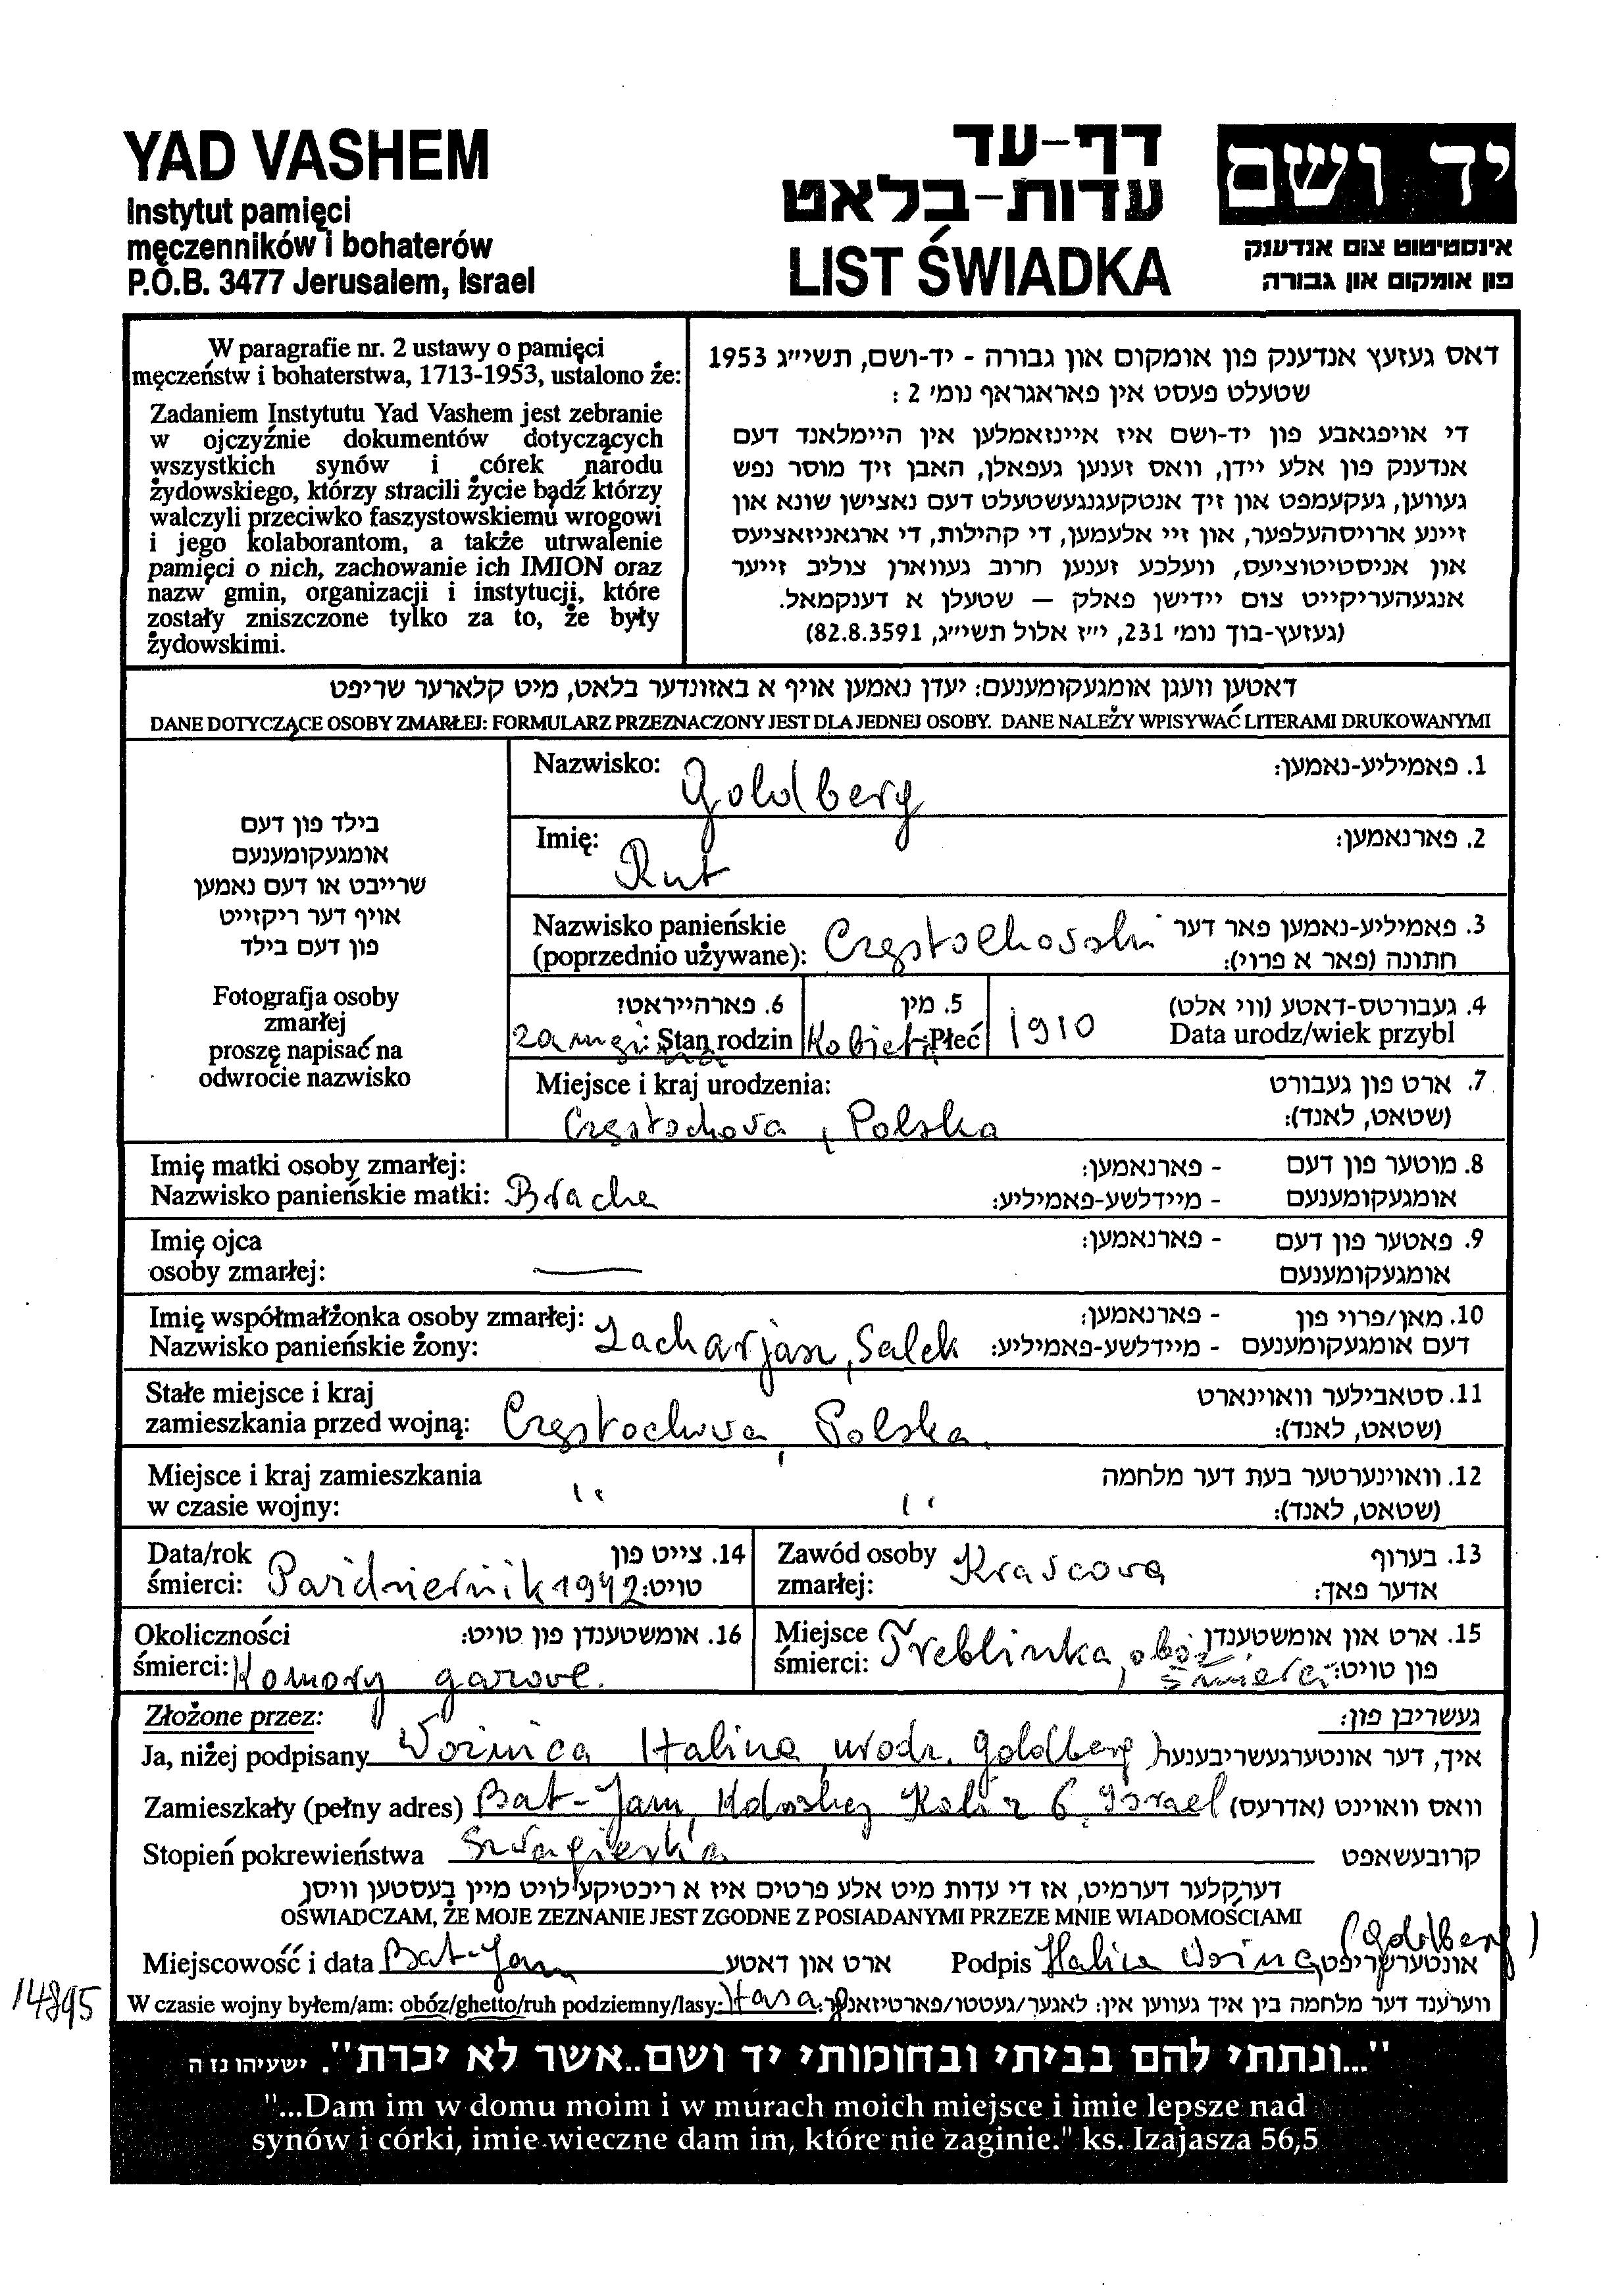 YAD VASHEM
Instytut pamięci
męczenników i bohaterów
P.O.B. 3477 Jerusalem, Israel
דף-עד
עדות-בלאט
LIST ŚWIADKA
יד ושם
אינסטיטוט צום אנדענק
פון אומקום און גבורה
W paragrafie nr. 2 ustawy o pamięci
męczeństw i bohaterstwa, 1713-1953, ustalono że:
Zadaniem Instytutu Yad Vashem jest zebranie
w ojczyźnie dokumentów dotyczących
wszystkich synów i córek narodu
żydowskiego, którzy stracili życie bądź którzy
walczyli przeciwko faszystowskiemu wrogowi
i jego kolaborantom, a także utrwalenie
pamięci o nich, zachowanie ich IMION oraz
nazw gmin, organizacji i instytucji, które
zostały zniszczone tylko za to, że były
żydowskimi.
דאס געזעץ אנדענק פון אומקום און גבורה - יד-ושם, תשי״ג 1953
שטעלט פעסט אין פאראגראף נומ׳ 2 :
די אויפגאבע פון יד-ושם איז איינזאמלען אין היימלאנד דעם
אנדענק פון אלע יידן, וואס זענען געפאלן, האבן זיך מוסר נפש
געווען, געקעמפט און זיך אנטקעגנגעשטעלט דעם נאצישן שונא און
זיינע ארויסהעלפער, און זיי אלעמען, די קהילות, די ארגאניזאציעס
און אניסטיטוציעס, וועלכע זענען חרוב געווארן צוליב זייער
אנגעהעריקייט צום יידישן פאלק — שטעלן א דענקמאל.
(געזעץ-בוך נומ׳ 231, י״ז אלול תשי״ג, 82.8.3591)
דאטען וועגן אומגעקומענעם: יעדן נאמען אויף א באזונדער בלאט, מיט קלארער שריפט
DANE DOTYCZĄCE OSOBY ZMARŁEJ: FORMULARZ PRZEZNACZONY JEST DLA JEDNEJ OSOBY. DANE NALEŻY WPISYWAĆ LITERAMI DRUKOWANYMI
בילד פון דעם
אומגעקומענעם
שרייבט או דעם נאמען
אויף דער ריקזייט
פון דעם בילד
Fotografja osoby
zmarłej
proszę napisać na
odwrocie nazwisko
Nazwisko: Goldberg 1. פאמיליע-נאמען:
Imię: Rut 2. פארנאמען:
Nazwisko panieńskie 3. פאמיליע-נאמען פאר דער
(poprzednio używane): חתונה (פאר א פרוי):
6. פארהייראט? 5. מין 4. געבורטס-דאטע (ווי אלט)
Stan rodzin Płeć 1910 Data urodz/wiek przybl
Miejsce i kraj urodzenia: 7. ארט פון געבורט
Częstochova, Polska (שטאט, לאנד):
Imię matki osoby zmarłej: - פארנאמען: 8. מוטער פון דעם
Nazwisko panieńskie matki: Brache - מיידלשע-פאמיליע: אומגעקומענעם
Imię ojca - פארנאמען: 9. פאטער פון דעם
osoby zmarłej: — אומגעקומענעם
Imię współmałżonka osoby zmarłej: - פארנאמען: 10. מאן/פרוי פון
Nazwisko panieńskie żony: Zacharjasz, Salek - מיידלשע-פאמיליע: דעם אומגעקומענעם
Stałe miejsce i kraj 11. סטאבילער וואוינארט
zamieszkania przed wojną: Częstochova, Polska. (שטאט, לאנד):
Miejsce i kraj zamieszkania 12. וואוינערטער בעת דער מלחמה
w czasie wojny: " " (שטאט, לאנד):
Data/rok 14. צייט פון Zawód osoby 13. בערוף
śmierci: Październik 1942 טויט: zmarłej: Krascova אדער פאך:
Okoliczności 16. אומשטענדן פון טויט: Miejsce 15. ארט און אומשטענדן
śmierci: Komory gazove. śmierci: Treblinka, obóz śmierci פון טויט:
Złożone przez: געשריבן פון:
Ja, niżej podpisany Woźnica Halina urodz. Goldberg איך, דער אונטערגעשריבענער
Zamieszkały (pełny adres) Bat-Jam, 6, Israel וואס וואוינט (אדרעס)
Stopień pokrewieństwa Szvagierka קרובעשאפט
דערקלער דערמיט, אז די עדות מיט אלע פרטים איז א ריכטיקע לויט מיין בעסטען וויסן
OŚWIADCZAM, ŻE MOJE ZEZNANIE JEST ZGODNE Z POSIADANYMI PRZEZE MNIE WIADOMOŚCIAMI
(Goldberg)
Miejscowość i data Bat-Jam ארט און דאטע Podpis Halina Woźnica אונטערשריפט
14895
W czasie wojny byłem/am: obóz/ghetto/ruh podziemny/lasy: Hasag ווערענד דער מלחמה בין איך געווען אין: לאגער/געטטו/פארטיזאנער:
"...ונתתי להם בביתי ובחומותי יד ושם..אשר לא יכרת". ישעיהו נז ה
"...Dam im w domu moim i w murach moich miejsce i imie lepsze nad
synów i córki, imie wieczne dam im, które nie zaginie." ks. Izajasza 56,5